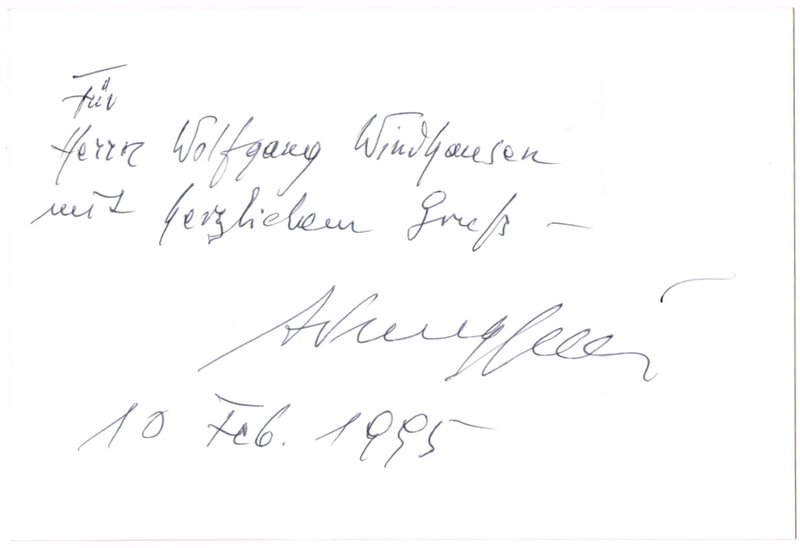 Für
Herrn Wolfgang Windhausen
mit herzlichem Gruß –
10 Feb. 1995